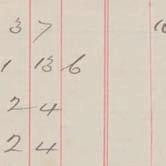 3 7
1 13 6
2 4
2 4